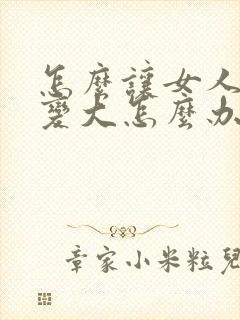 怎麼讓女人
變大怎麼办
章家小米粒兒